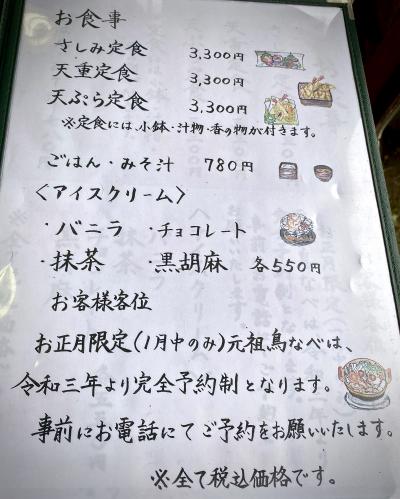 お食事
さしみ定食 3,300円
天重定食 3,300円
天ぷら定食 3,300円
※定食には、小鉢・汁物・香の物が付きます。
ごはん・みそ汁 780円
〈アイスクリーム〉
・バニラ ・チョコレート
・抹茶 ・黒胡麻 各550円
お客様客位
お正月限定(1月中のみ)元祖鳥なべは、
令和三年より完全予約制となります。
事前にお電話にてご予約をお願いいたします。
※全て税込価格です。